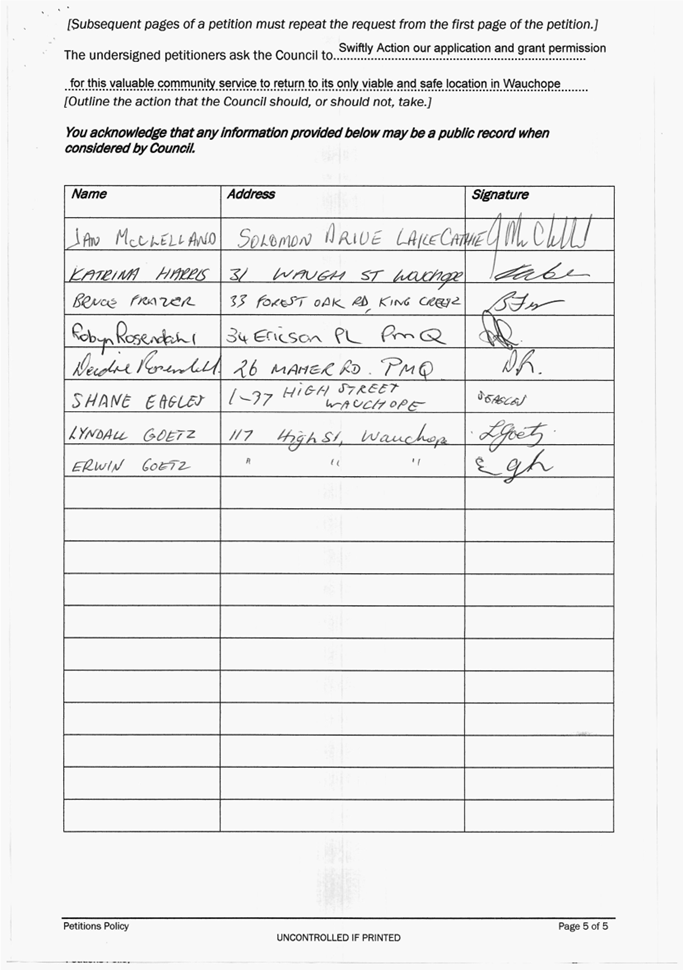 [Subsequent pages of a petition must repeat the request from the first page of the petition.]
The undersigned petitioners ask the Council to Swiftly Action our application and grant permission
for this valuable community service to return to its only viable and safe location in Wauchope
[Outline the action that the Council should, or should not, take.]
You acknowledge that any information provided below may be a public record when
considered by Council.
Name Address Signature
JAN MCCLELLAND SOLOMON DRIVE LAKE CATHIE J McClelland
KATRINA HARRIS 31 WAUGH ST Wauchope
BRUCE FRAZER 33 FOREST OAK RD, KING CREEK
Robyn Rosendahl 34 Ericson PL PmQ
Deidre Rosendahl. 26 MAHER RD. PMQ D.R.
SHANE EAGLES 1-37 HIGH STREET WAUCHOPE SEAGLES
LYNDALL GOETZ 117 High St, Wauchope LGoetz
ERWIN GOETZ " " "
Petitions Policy Page 5 of 5
UNCONTROLLED IF PRINTED